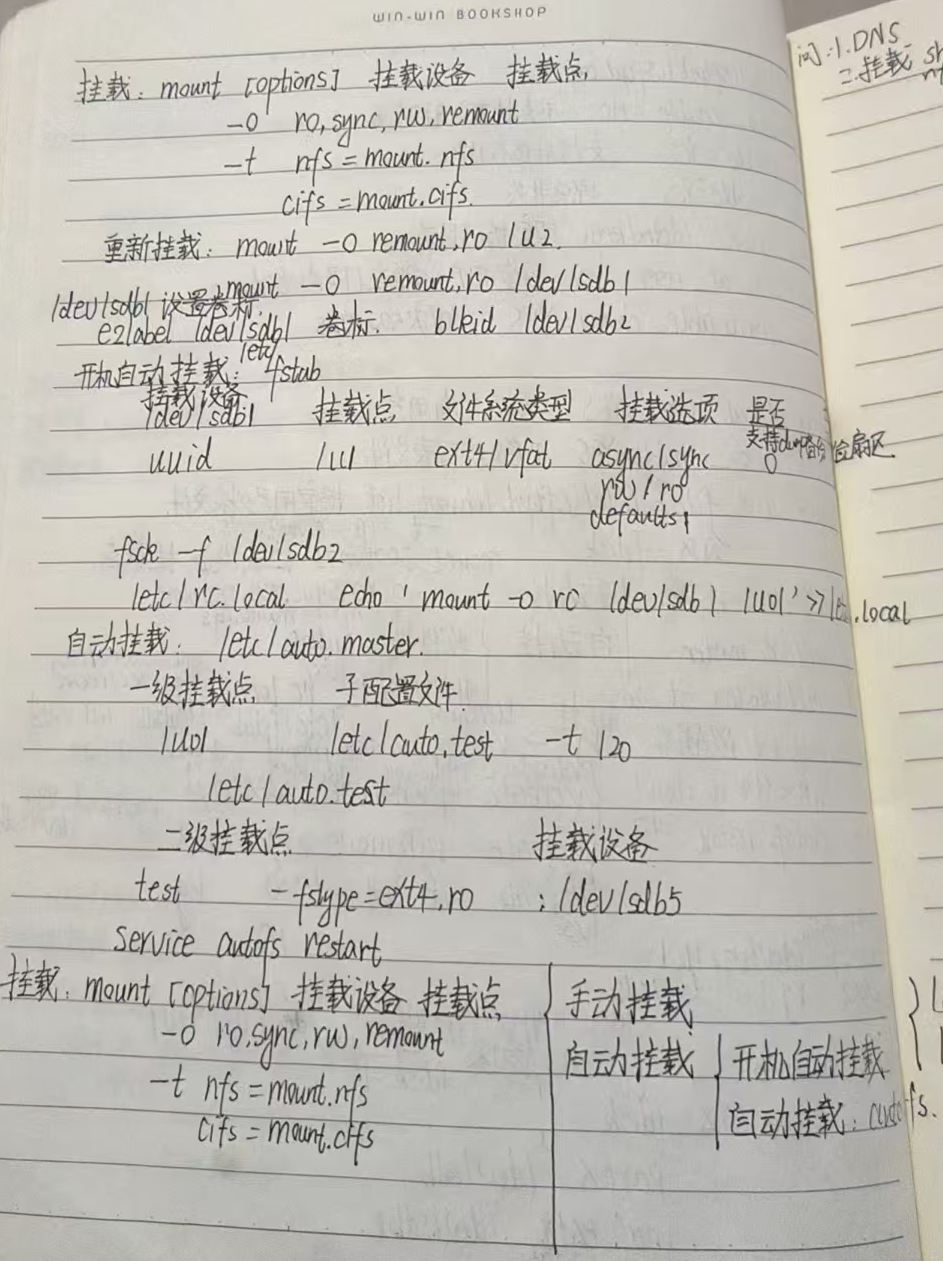 WIN-WIN BOOKSHOP
问:1.DNS
二.挂载
挂载: mount [options] 挂载设备 挂载点,
-o ro,sync,rw,remount
-t nfs=mount.nfs
cifs=mount.cifs.
重新挂载: mount -o remount,ro /u2.
mount -o remount,ro /dev/sdb1
/dev/sdb1 设置卷标.
e2label /dev/sdb1 卷标. blkid /dev/sdb2
/etc/
开机自动挂载: fstab
挂载设备
/dev/sdb1 挂载点 文件系统类型 挂载选项 是否
支持dump备份 检扇区
uuid /u1 ext4/vfat async/sync 0
rw/ro
defaults
fsck -f /dev/sdb2
/etc/rc.local echo 'mount -o ro /dev/sdb1 /u01' >> .local
自动挂载: /etc/auto.master.
一级挂载点 子配置文件.
/u01 /etc/auto.test -t 120
/etc/auto.test
二级挂载点 挂载设备
test -fstype=ext4,ro :/dev/sdb5
service autofs restart
挂载: mount [options] 挂载设备 挂载点
-o ro,sync,rw,remount
-t nfs=mount.nfs
cifs=mount.cifs
手动挂载
自动挂载 开机自动挂载
自动挂载: autofs.